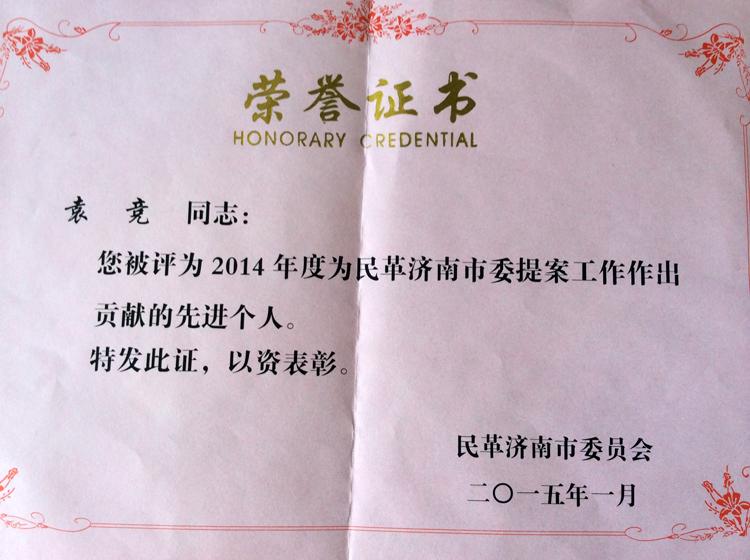 荣誉证书
HONORARY CREDENTIAL
袁 竞 同志：
您被评为 2014 年度为民革济南市委提案工作作出
贡献的先进个人。
特发此证，以资表彰。
民革济南市委员会
二〇一五年一月